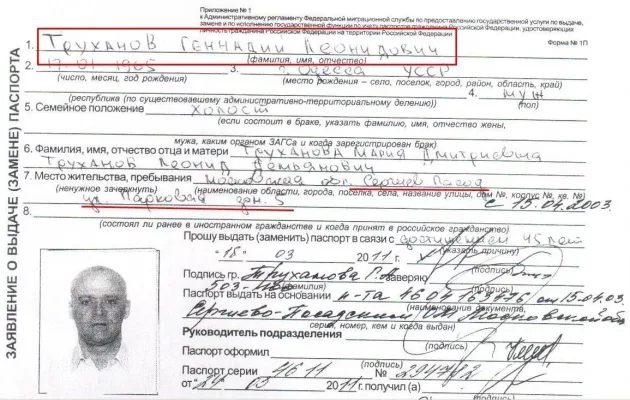 Приложение № 1
к Административному регламенту Федеральной миграционной службы по предоставлению государственной услуги по выдаче,
замене и по исполнению государственной функции по учету паспортов гражданина Российской Федерации, удостоверяющих
личность гражданина Российской Федерации на территории Российской Федерации
Форма № 1П
ЗАЯВЛЕНИЕ О ВЫДАЧЕ (ЗАМЕНЕ) ПАСПОРТА
1. Труханов Геннадий Леонидович
(фамилия, имя, отчество)
2. 17.01 1965 3. г. Одесса УССР
(число, месяц, год рождения) (место рождения – село, поселок, город, район, область, край)
4. муж
(республика (по существовавшему административно-территориальному делению)) (пол)
5. Семейное положение холост
(если состоит в браке, указать фамилию, имя, отчество жены,
мужа, каким органом ЗАГСа и когда зарегистрирован брак)
6. Фамилия, имя, отчество отца и матери Труханова Мария Дмитриевна
Труханов Леонид Демьянович
7. Место жительства, пребывания Московская обл. Сергиев Посад
(ненужное зачеркнуть) (наименование области, города, поселка, села, название улицы, дом №, корпус №, кв. №)
ул. Парковая дом. 5 с 15.04.2003
8.
(состоял ли ранее в иностранном гражданстве и когда принят в российское гражданство)
Прошу выдать (заменить) паспорт в связи с достижением 45 лет
(указать причину)
"18" 03 2011 г.
(подпись)
Подпись гр. Труханова Г.Л. заверяю
(фамилия) (подпись)
503-
Паспорт выдать на основании п-та 4604 от 15.04.03.
Сергиево-Посадским Московской обл
(наименование документа, серия, номер, кем и когда выдан)
Руководитель подразделения
(подпись)
Паспорт оформил
(подпись)
Паспорт серии 4611 №
от "24" 03 2011 г. получил (а)
(подпись)